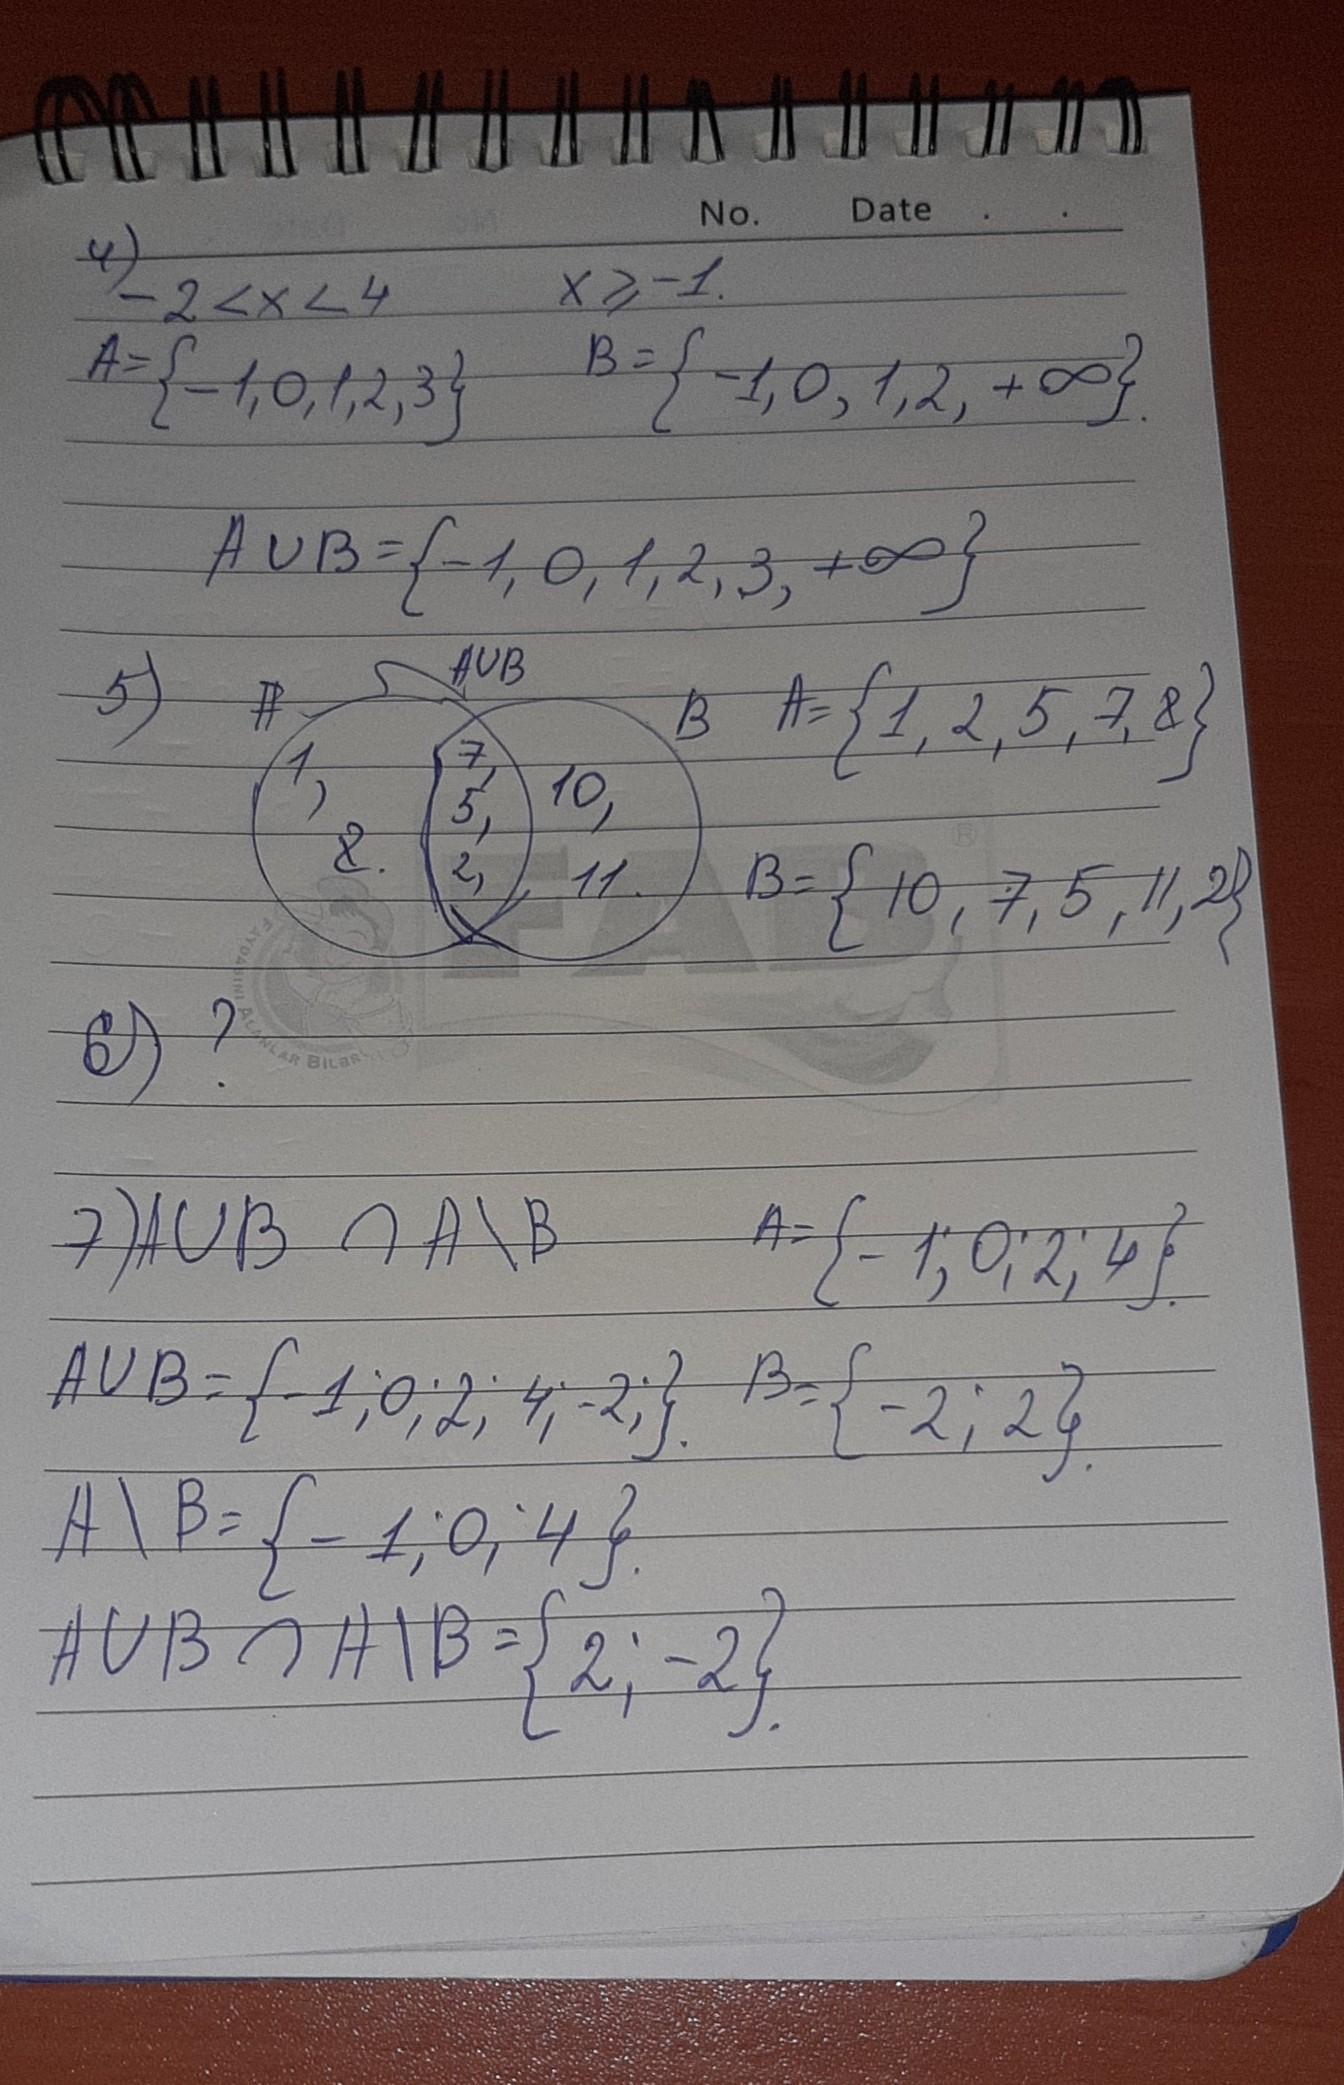 No. Date . .
4)
-2<x<4 x⩾-1.
A={-1,0,1,2,3} B={-1,0,1,2,+∞}.
A∪B={-1,0,1,2,3,+∞}
5) A A∪B B A={1,2,5,7,8}
1, 7, 10,
8. 5, 11.
2,
B={10,7,5,11,2}
FAB®
FAYDASINI ALANLAR BILER
6) ?
7) A∪B ∩ A\B A={-1;0;2;4}.
A∪B={-1;0;2;4;-2;}. B={-2;2}.
A\B={-1;0;4}.
A∪B∩A\B={2;-2}.